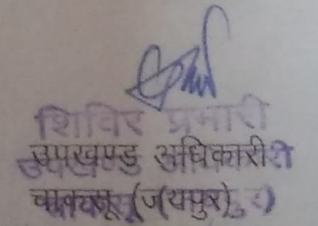 शिविर प्रभारी
उपखण्ड अधिकारी
चाकसू (जयपुर)